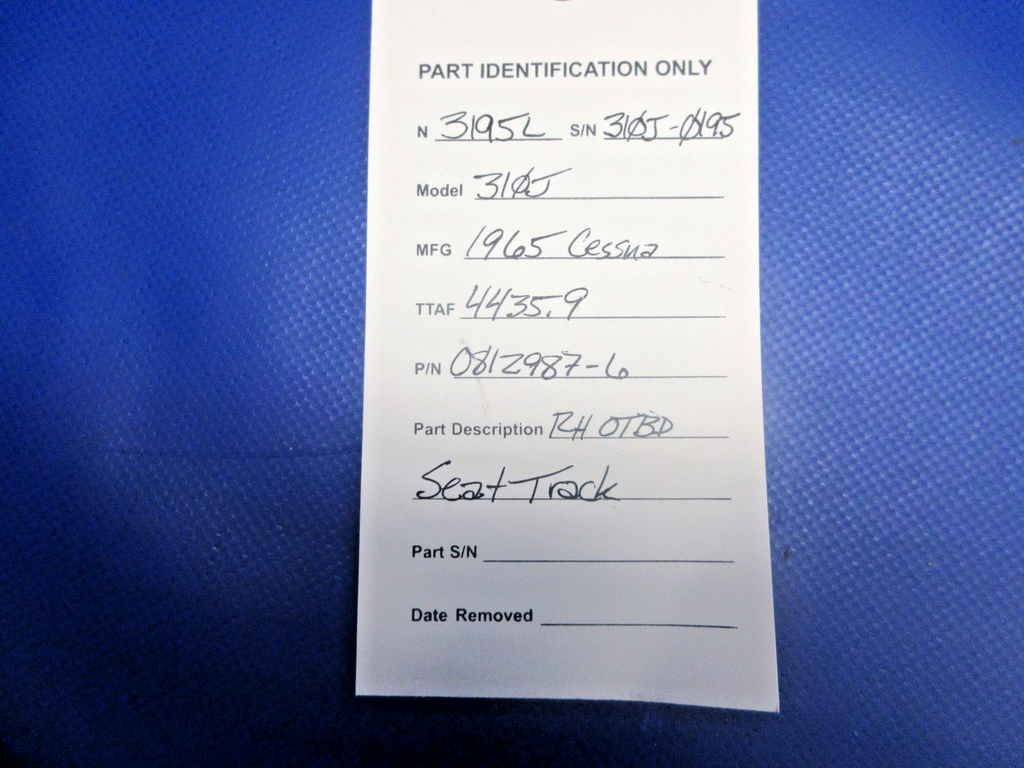 PART IDENTIFICATION ONLY
N 3195L S/N 310J-0195
Model 310J
MFG 1965 Cessna
TTAF 4435.9
P/N 0812987-6
Part Description RH OTBD
Seat Track
Part S/N
Date Removed